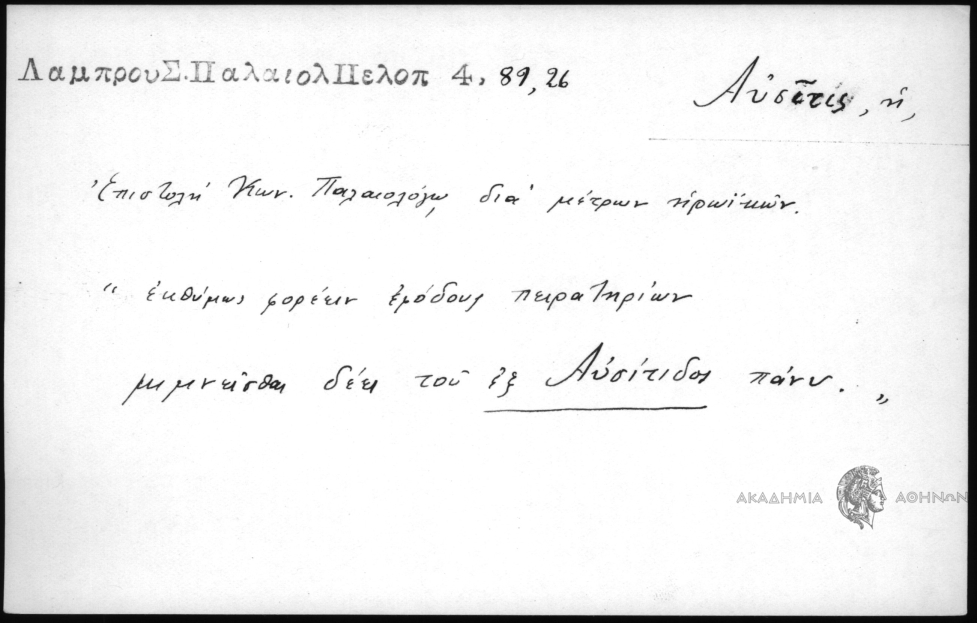 ΛαμπρουΣ.ΠαλαιολΠελοπ 4, 89,26
Αὐσῖτις, ἡ,
Ἐπιστολή Κων. Παλαιολόγῳ, διά μέτρων ἡρωϊκῶν.
“ ἐκθύμως φορέειν ἐφόδους πειρατηρίων
μεμνεῖσθαι δέει τοῦ ἐξ Αὐσίτιδος πάνυ. „
ΑΚΑΔΗΜΙΑ ΑΘΗΝΩΝ